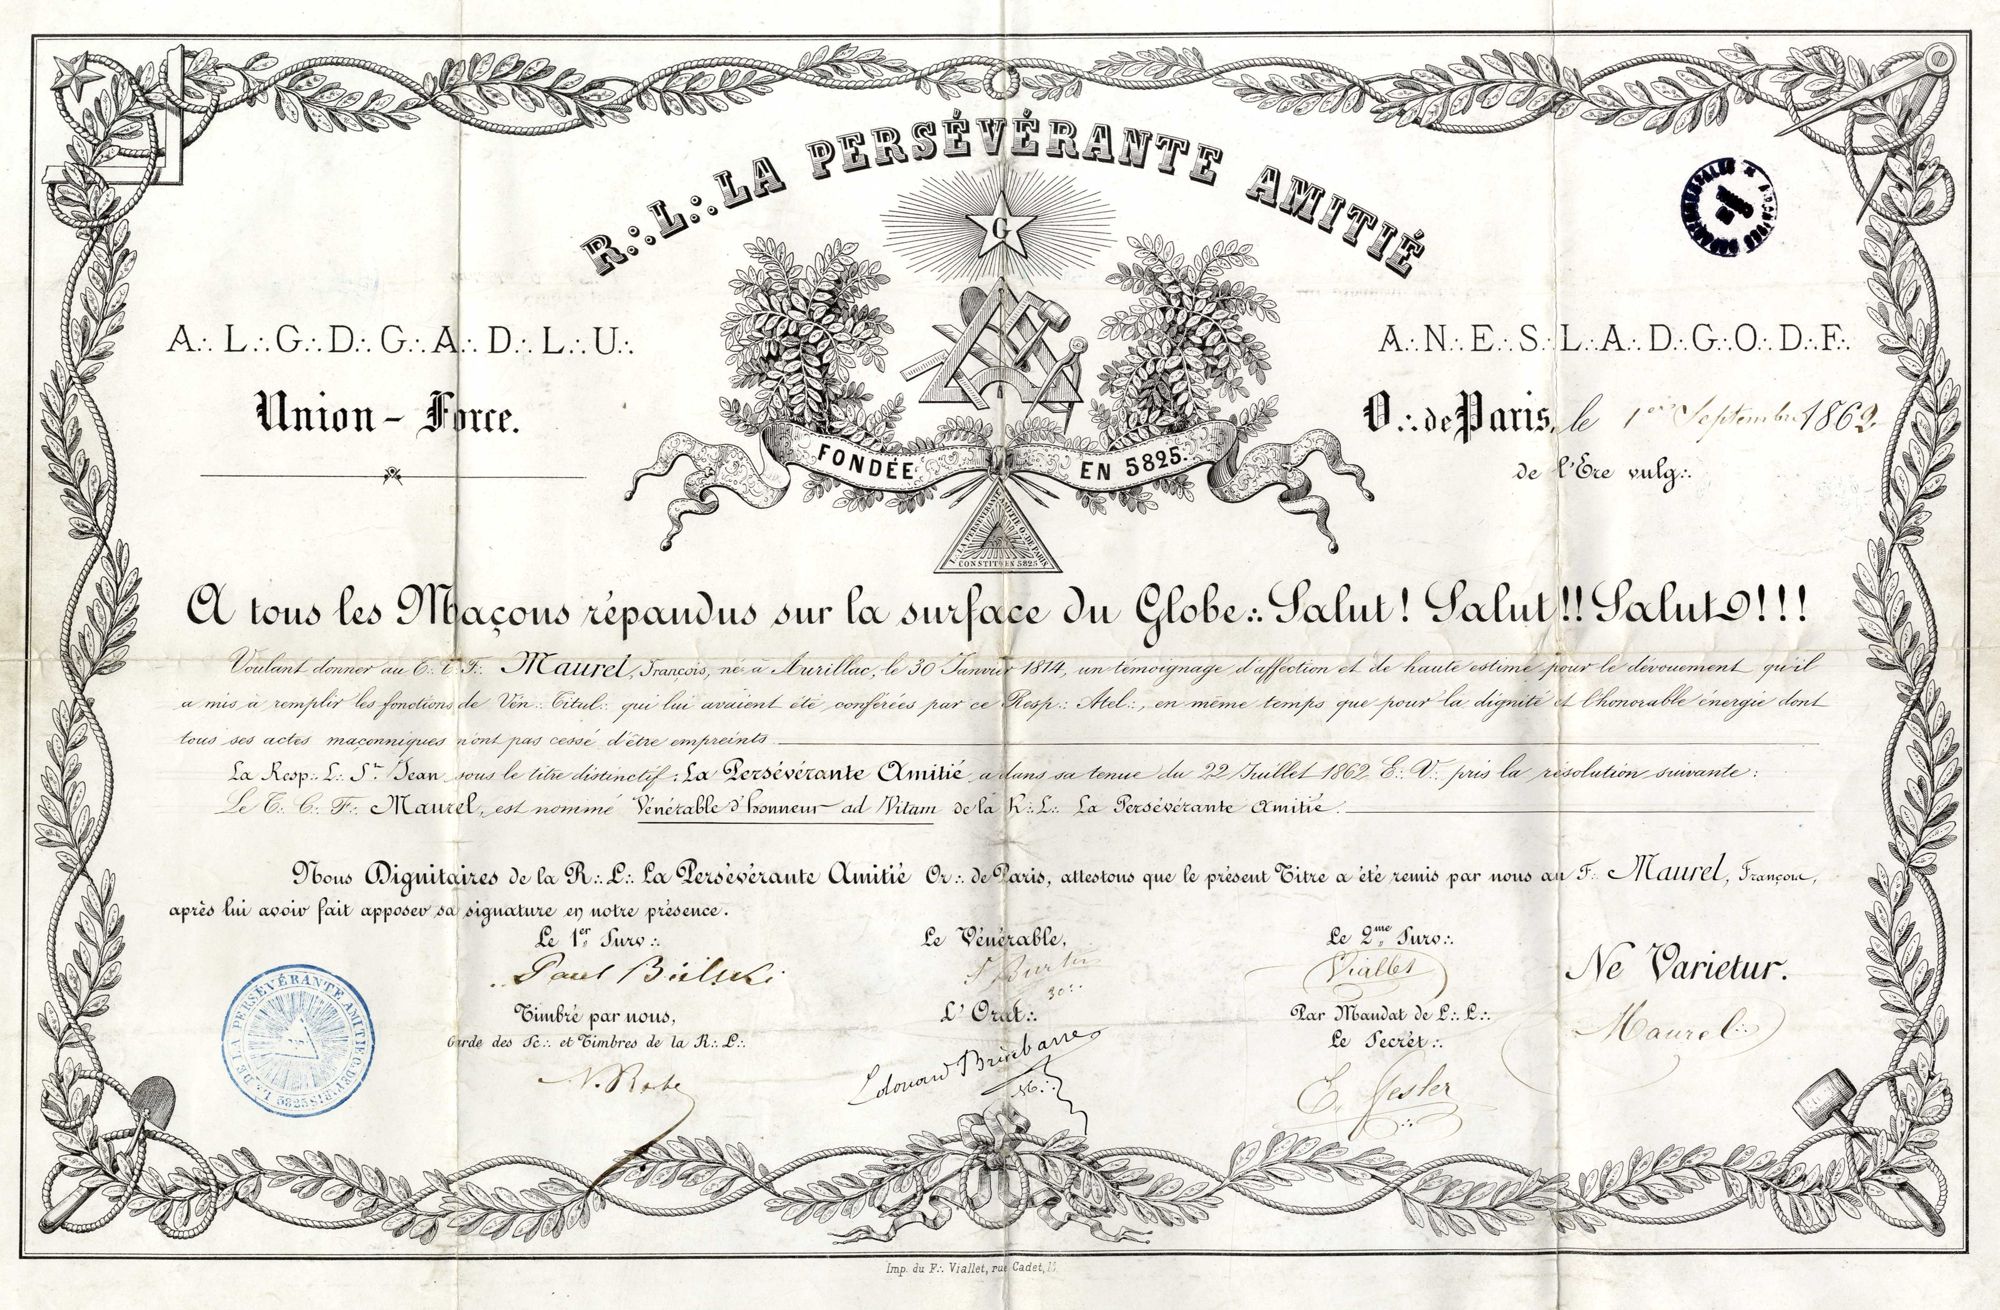 R∴ L∴ LA PERSÉVÉRANTE AMITIÉ
G
A∴ L∴ G∴ D∴ G∴ A∴ D∴ L∴ U∴
A∴ N∴ E∴ S∴ L∴ A∴ D∴ G∴ O∴ D∴ F∴
Union - Force.
O∴ de Paris, le 1er Septembre 1862
de l'Ere vulg∴
FONDÉE EN 5825.
L∴ LA PERSÉVÉRANTE AMITIÉ O∴ DE PARIS
CONSTIT∴ EN 5825
A tous les Maçons répandus sur la surface du Globe∴ Salut! Salut!! Salut!!!
Voulant donner au T∴ C∴ F∴ Maurel, François, né à Aurillac, le 30 Janvier 1814, un témoignage d'affection et de haute estime pour le dévouement qu'il
a mis à remplir les fonctions de Vén∴ Titul∴ qui lui avaient été conférées par ce Resp∴ Atel∴, en même temps que pour la dignité et l'honorable énergie dont
tous ses actes maçonniques n'ont pas cessé d'être empreints.
La Resp∴ L∴ St Jean, sous le titre distinctif: La Persévérante Amitié, a dans sa tenue du 22 Juillet 1862 E∴ V∴ pris la résolution suivante:
Le T∴ C∴ F∴ Maurel, est nommé Vénérable d'honneur ad Vitam de la R∴ L∴ La Persévérante Amitié.
Nous Dignitaires de la R∴ L∴ La Persévérante Amitié Or∴ de Paris, attestons que le présent Titre a été remis par nous au F∴ Maurel, François,
après lui avoir fait apposer sa signature en notre présence.
Le 1er Surv∴ Le Vénérable, Le 2me Surv∴
Paul Bielski Viallet
30∴
Ne Varietur.
Timbré par nous, L'Orat∴ Par Mandat de L∴ L∴
Garde des Sc∴ et Timbres de la R∴ L∴ Le Secrét∴
Maurel∴
Edouard
E. Gesler
L∴ DE LA PERSÉVÉRANTE AMITIÉ O∴ DE PARIS 5825
Imp. du F∴ Viallet, rue Cadet,